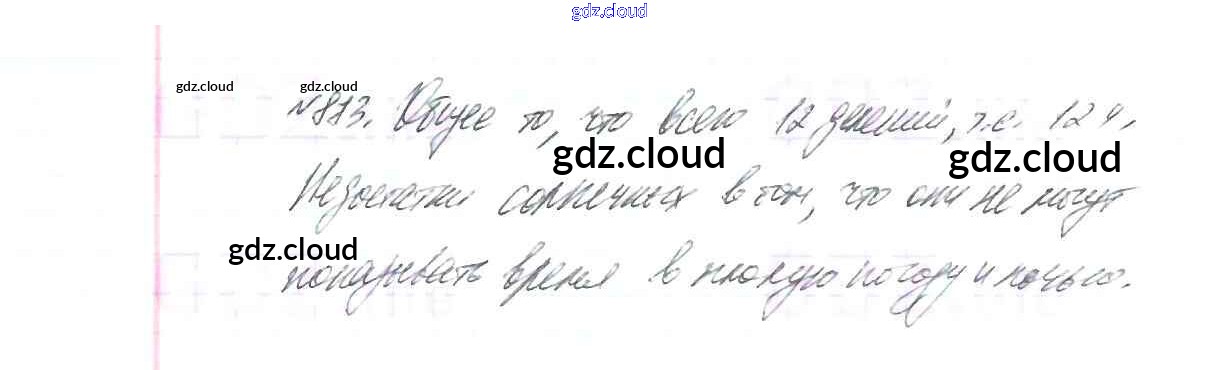 gdz.cloud
gdz.cloud gdz.cloud
№813. Общее то, что всего 12 делений, т.е. 12 ч.
gdz.cloud gdz.cloud
Недостатки солнечных в том, что они не могут
gdz.cloud
показывать время в плохую погоду и ночью.